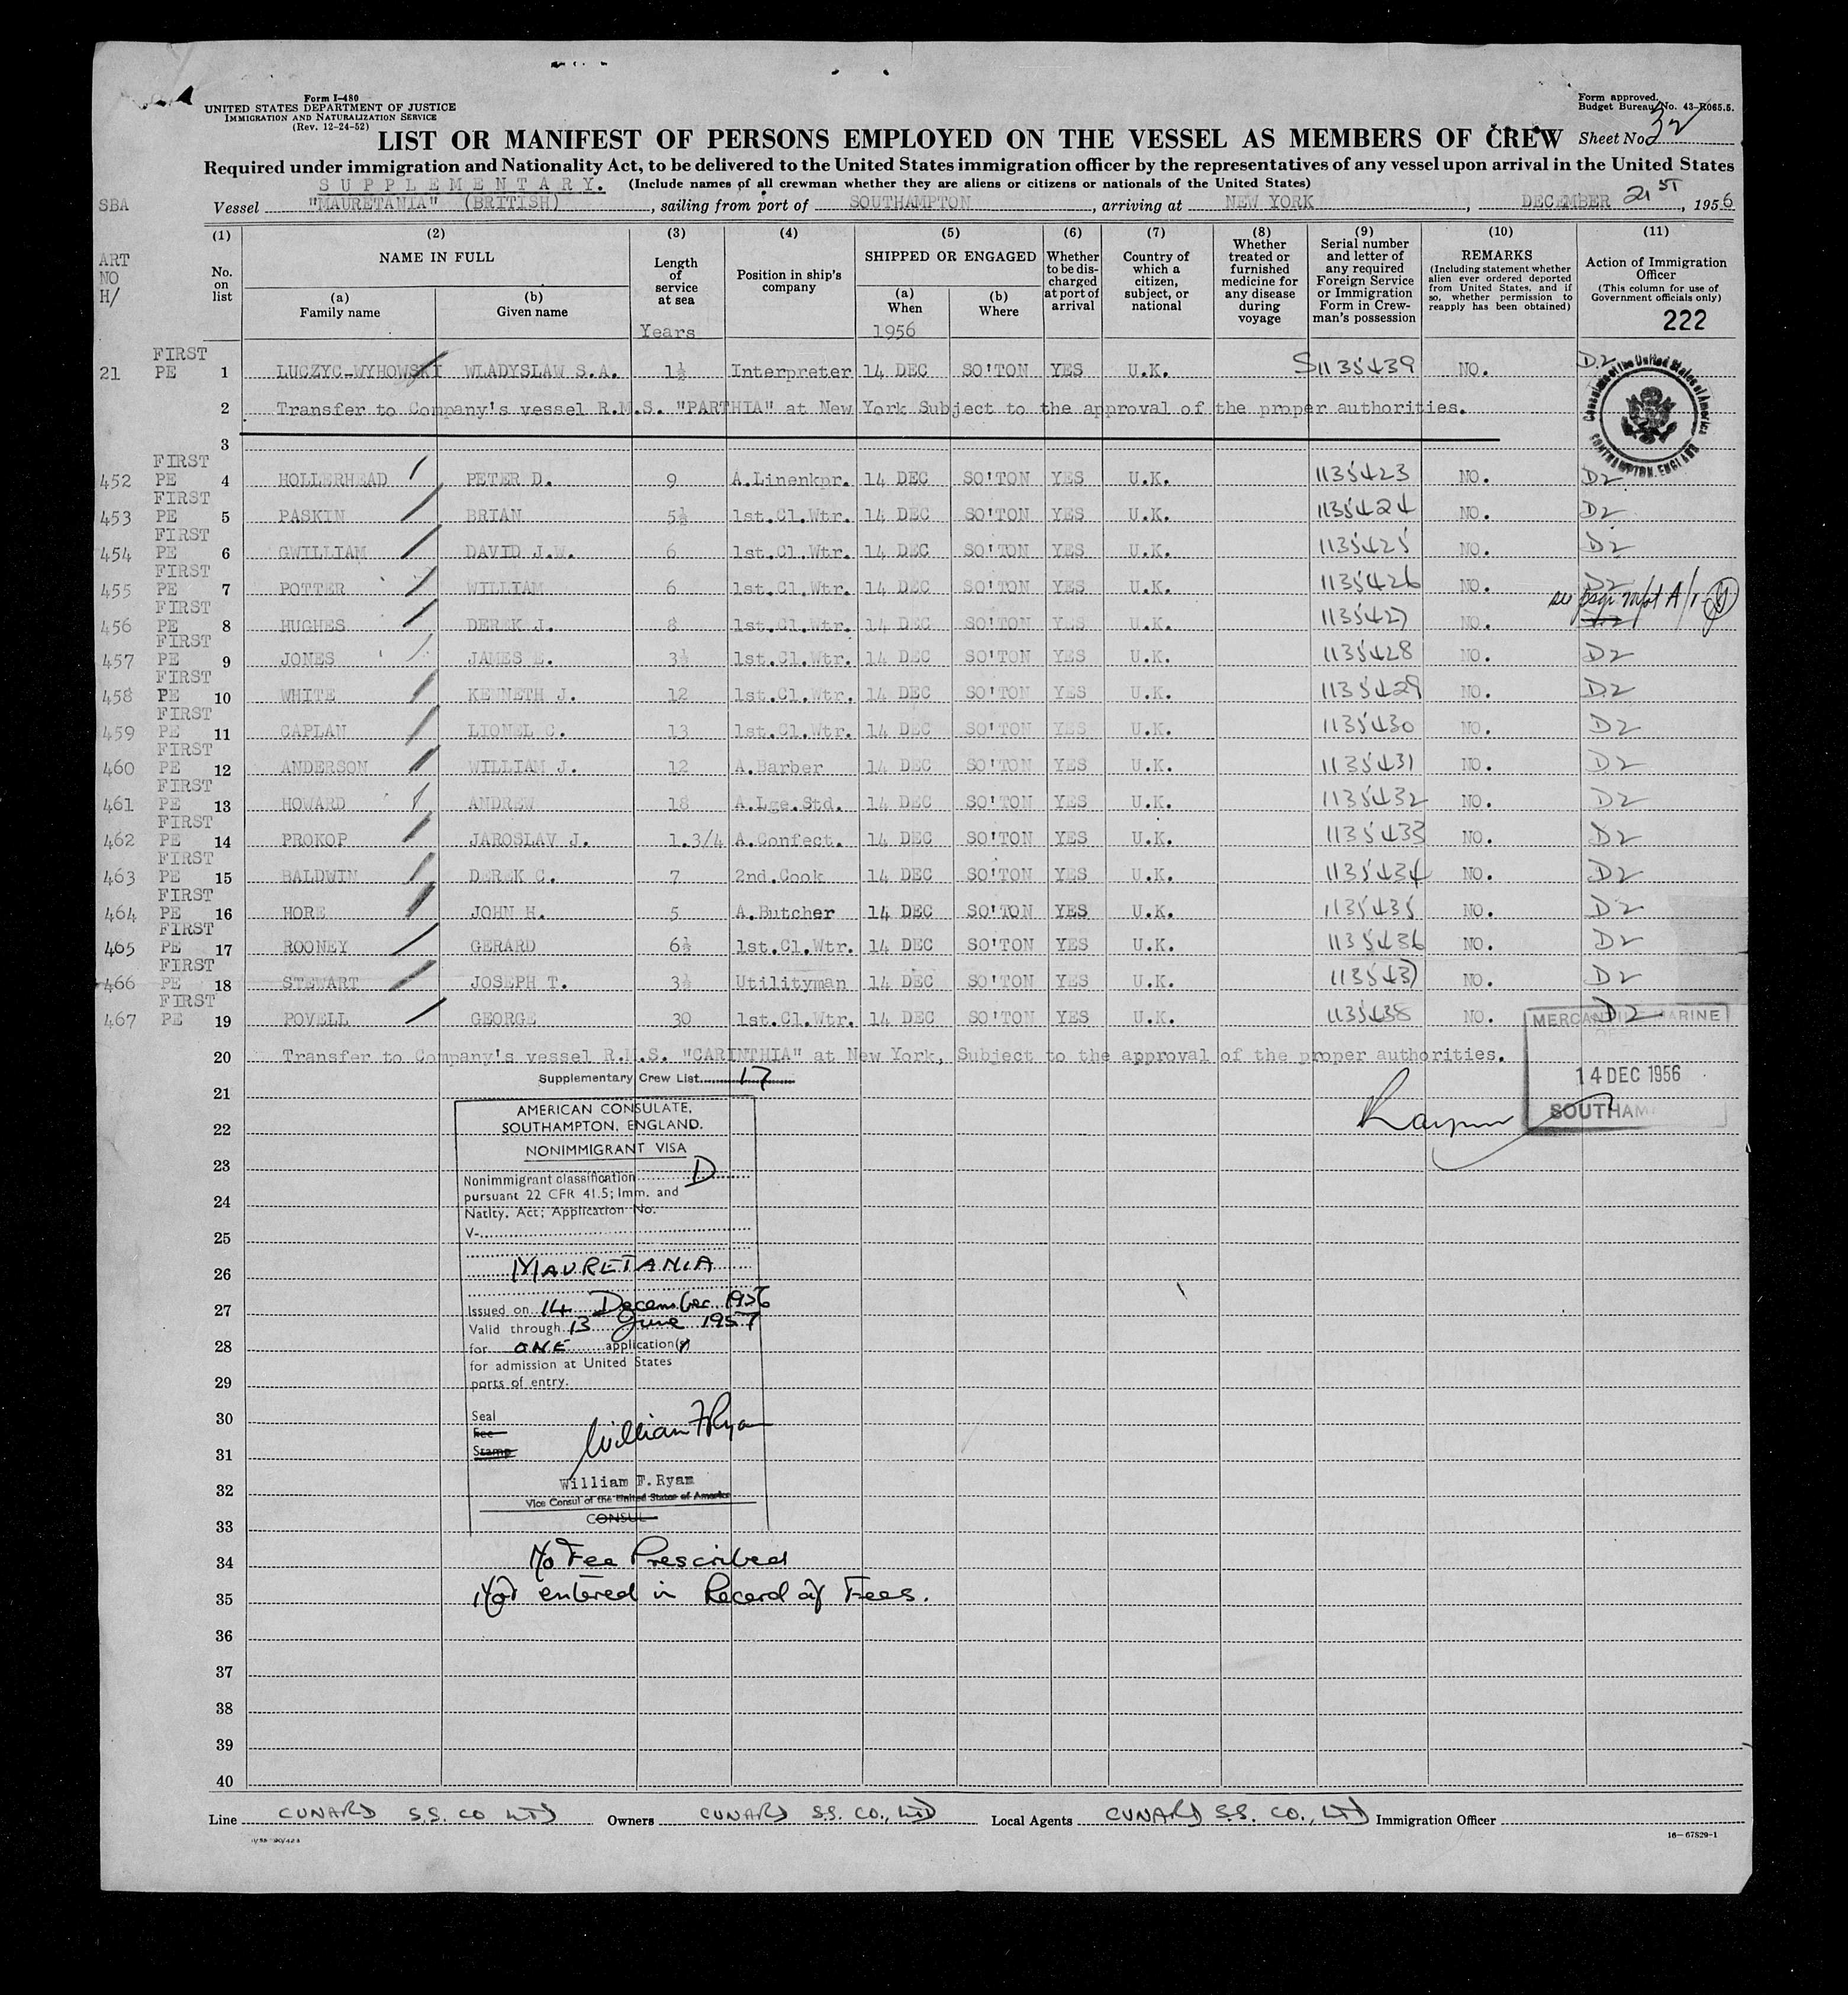 Form I-480
UNITED STATES DEPARTMENT OF JUSTICE
IMMIGRATION AND NATURALIZATION SERVICE
(Rev. 12-24-52)
Form approved.
Budget Bureau No. 43-R065.5.
LIST OR MANIFEST OF PERSONS EMPLOYED ON THE VESSEL AS MEMBERS OF CREW Sheet No. 32
Required under immigration and Nationality Act, to be delivered to the United States immigration officer by the representatives of any vessel upon arrival in the United States
SUPPLEMENTARY. (Include names of all crewman whether they are aliens or citizens or nationals of the United States)
SBA Vessel "MAURETANIA" (BRITISH), sailing from port of SOUTHAMPTON, arriving at NEW YORK, DECEMBER 21ST, 1956
ART NO H/
(1) No. on list
(2) NAME IN FULL (a) Family name (b) Given name
(3) Length of service at sea Years
(4) Position in ship's company
(5) SHIPPED OR ENGAGED (a) When 1956 (b) Where
(6) Whether to be discharged at port of arrival
(7) Country of which a citizen, subject, or national
(8) Whether treated or furnished medicine for any disease during voyage
(9) Serial number and letter of any required Foreign Service or Immigration Form in Crewman's possession
(10) REMARKS (Including statement whether alien ever ordered deported from United States, and if so, whether permission to reapply has been obtained)
(11) Action of Immigration Officer (This column for use of Government officials only)
222
21 FIRST PE 1 LUCZYC-WYHOWSKI WLADYSLAW S.A. 1½ Interpreter 14 DEC SO'TON YES U.K. S1135439 NO. D2
2 Transfer to Company's vessel R.M.S. "PARTHIA" at New York Subject to the approval of the proper authorities.
Consulate of the United States of America SOUTHAMPTON, ENGLAND
3
452 FIRST PE 4 HOLLERHEAD PETER D. 9 A.Linenkpr. 14 DEC SO'TON YES U.K. 1135423 NO. D2
453 FIRST PE 5 PASKIN BRIAN 5½ 1st.Cl.Wtr. 14 DEC SO'TON YES U.K. 1135424 NO. D2
454 FIRST PE 6 GWILLIAM DAVID J.W. 6 1st.Cl.Wtr. 14 DEC SO'TON YES U.K. 1135425 NO. D2
455 FIRST PE 7 POTTER WILLIAM 6 1st.Cl.Wtr. 14 DEC SO'TON YES U.K. 1135426 NO. D2
456 FIRST PE 8 HUGHES DEREK J. 8 1st.Cl.Wtr. 14 DEC SO'TON YES U.K. 1135427 NO. see
457 FIRST PE 9 JONES JAMES E. 3½ 1st.Cl.Wtr. 14 DEC SO'TON YES U.K. 1135428 NO. D2
458 FIRST PE 10 WHITE KENNETH J. 12 1st.Cl.Wtr. 14 DEC SO'TON YES U.K. 1135429 NO. D2
459 FIRST PE 11 CAPLAN LIONEL C. 13 1st.Cl.Wtr. 14 DEC SO'TON YES U.K. 1135430 NO. D2
460 FIRST PE 12 ANDERSON WILLIAM J. 12 A.Barber 14 DEC SO'TON YES U.K. 1135431 NO. D2
461 FIRST PE 13 HOWARD ANDREW 18 A.Lge.Std. 14 DEC SO'TON YES U.K. 1135432 NO. D2
462 FIRST PE 14 PROKOP JAROSLAV J. 1.3/4 A.Confect. 14 DEC SO'TON YES U.K. 1135433 NO. D2
463 FIRST PE 15 BALDWIN DEREK C. 7 2nd.Cook 14 DEC SO'TON YES U.K. 1135434 NO. D2
464 FIRST PE 16 HORE JOHN H. 5 A.Butcher 14 DEC SO'TON YES U.K. 1135435 NO. D2
465 FIRST PE 17 ROONEY GERARD 6½ 1st.Cl.Wtr. 14 DEC SO'TON YES U.K. 1135436 NO. D2
466 FIRST PE 18 STEWART JOSEPH T. 3½ Utilityman 14 DEC SO'TON YES U.K. 1135437 NO. D2
467 FIRST PE 19 POVELL GEORGE 30 1st.Cl.Wtr. 14 DEC SO'TON YES U.K. 1135438 NO. D2
20 Transfer to Company's vessel R.M.S. "CARINTHIA" at New York, Subject to the approval of the proper authorities.
MERCANTILE MARINE
14 DEC 1956
SOUTHAM
Supplementary Crew List 17
21
22
23
24
25
26
27
28
29
30
31
32
33
34
35
36
37
38
39
40
AMERICAN CONSULATE,
SOUTHAMPTON, ENGLAND.
NONIMMIGRANT VISA
Nonimmigrant classification D
pursuant 22 CFR 41.5; Imm. and
Natlty. Act; Application No.
V-
MAURETANIA
Issued on 14 December 1956
Valid through 13 June 1957
for ONE application(s)
for admission at United States
ports of entry.
Seal
Fee
Stamp
William F Ryan
William F. Ryan
Vice Consul of the United States of America
CONSUL
No Fee Prescribed
Not entered in Record of Fees.
Line CUNARD S.S. CO LTD Owners CUNARD S.S. CO., LTD Local Agents CUNARD S.S. CO., LTD Immigration Officer
16—67829-1